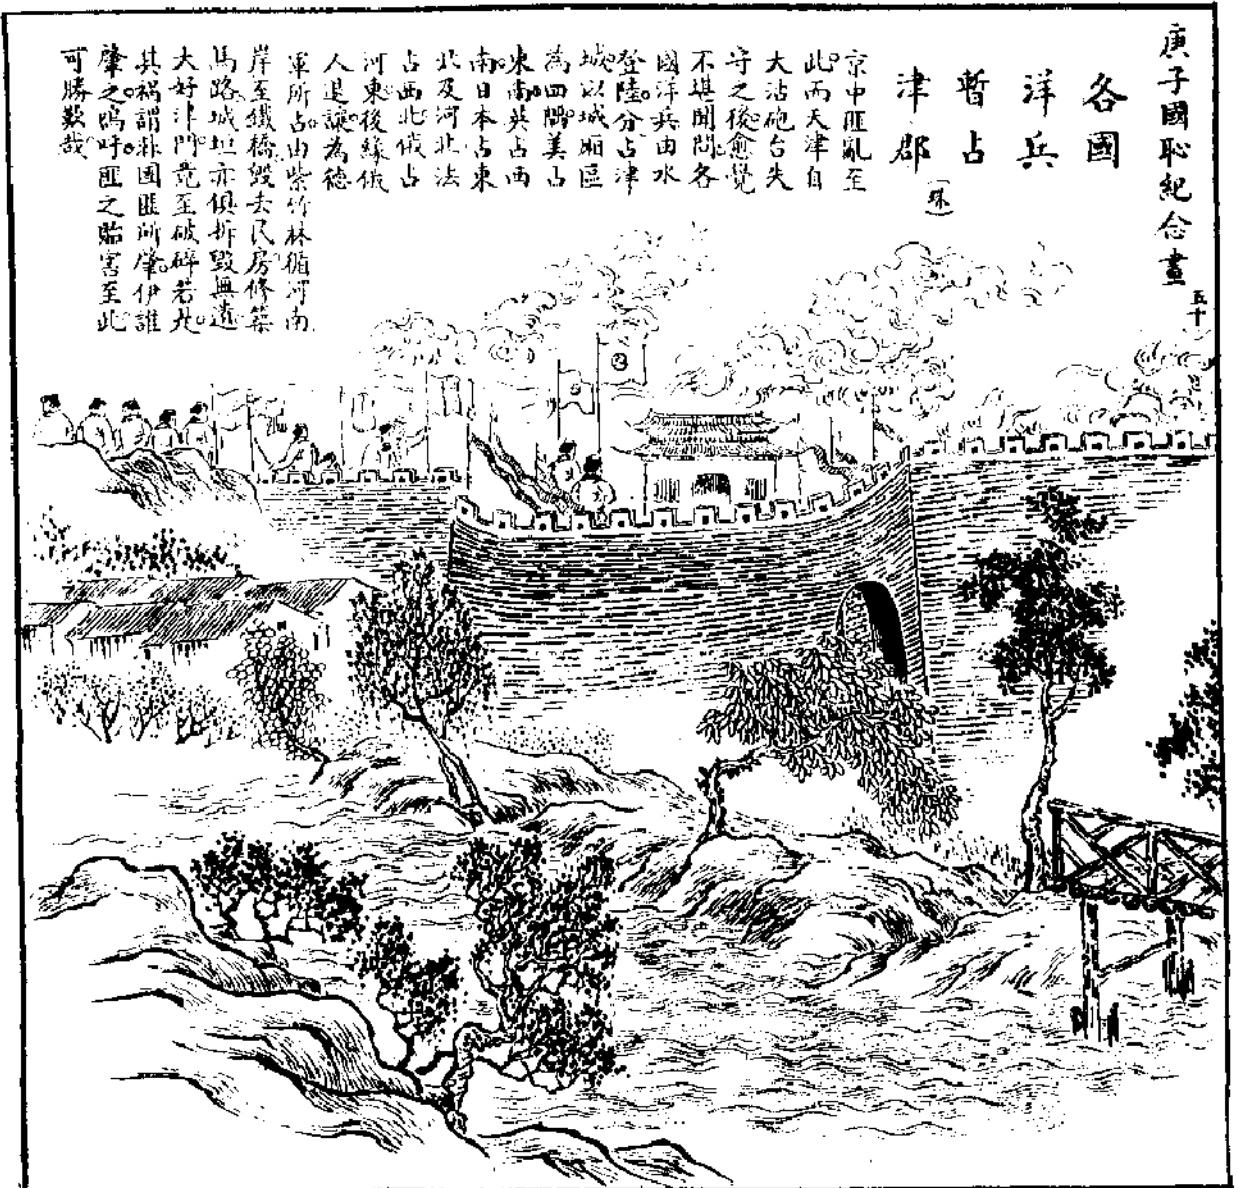 庚子國恥紀念畫
五十
各國
洋兵
暫占
津郡
(珠)
京中匪亂至
此而天津自
大沽砲台失
守之後愈覺
不堪聞問各
國洋兵由水
登陸分占津
城以城廂區
為四隅美占
東南英占西
南日本占東
北及河北法
占西北俄占
河東後緣俄
人退讓為德
軍所占由紫竹林循河南
岸至鐵橋毀去民房修築
馬路城垣亦俱拆毀無遺
大好津門竟至破碎若此
其禍謂非團匪所肇伊誰
肇之嗚呼匪之貽害至此
可勝歎哉